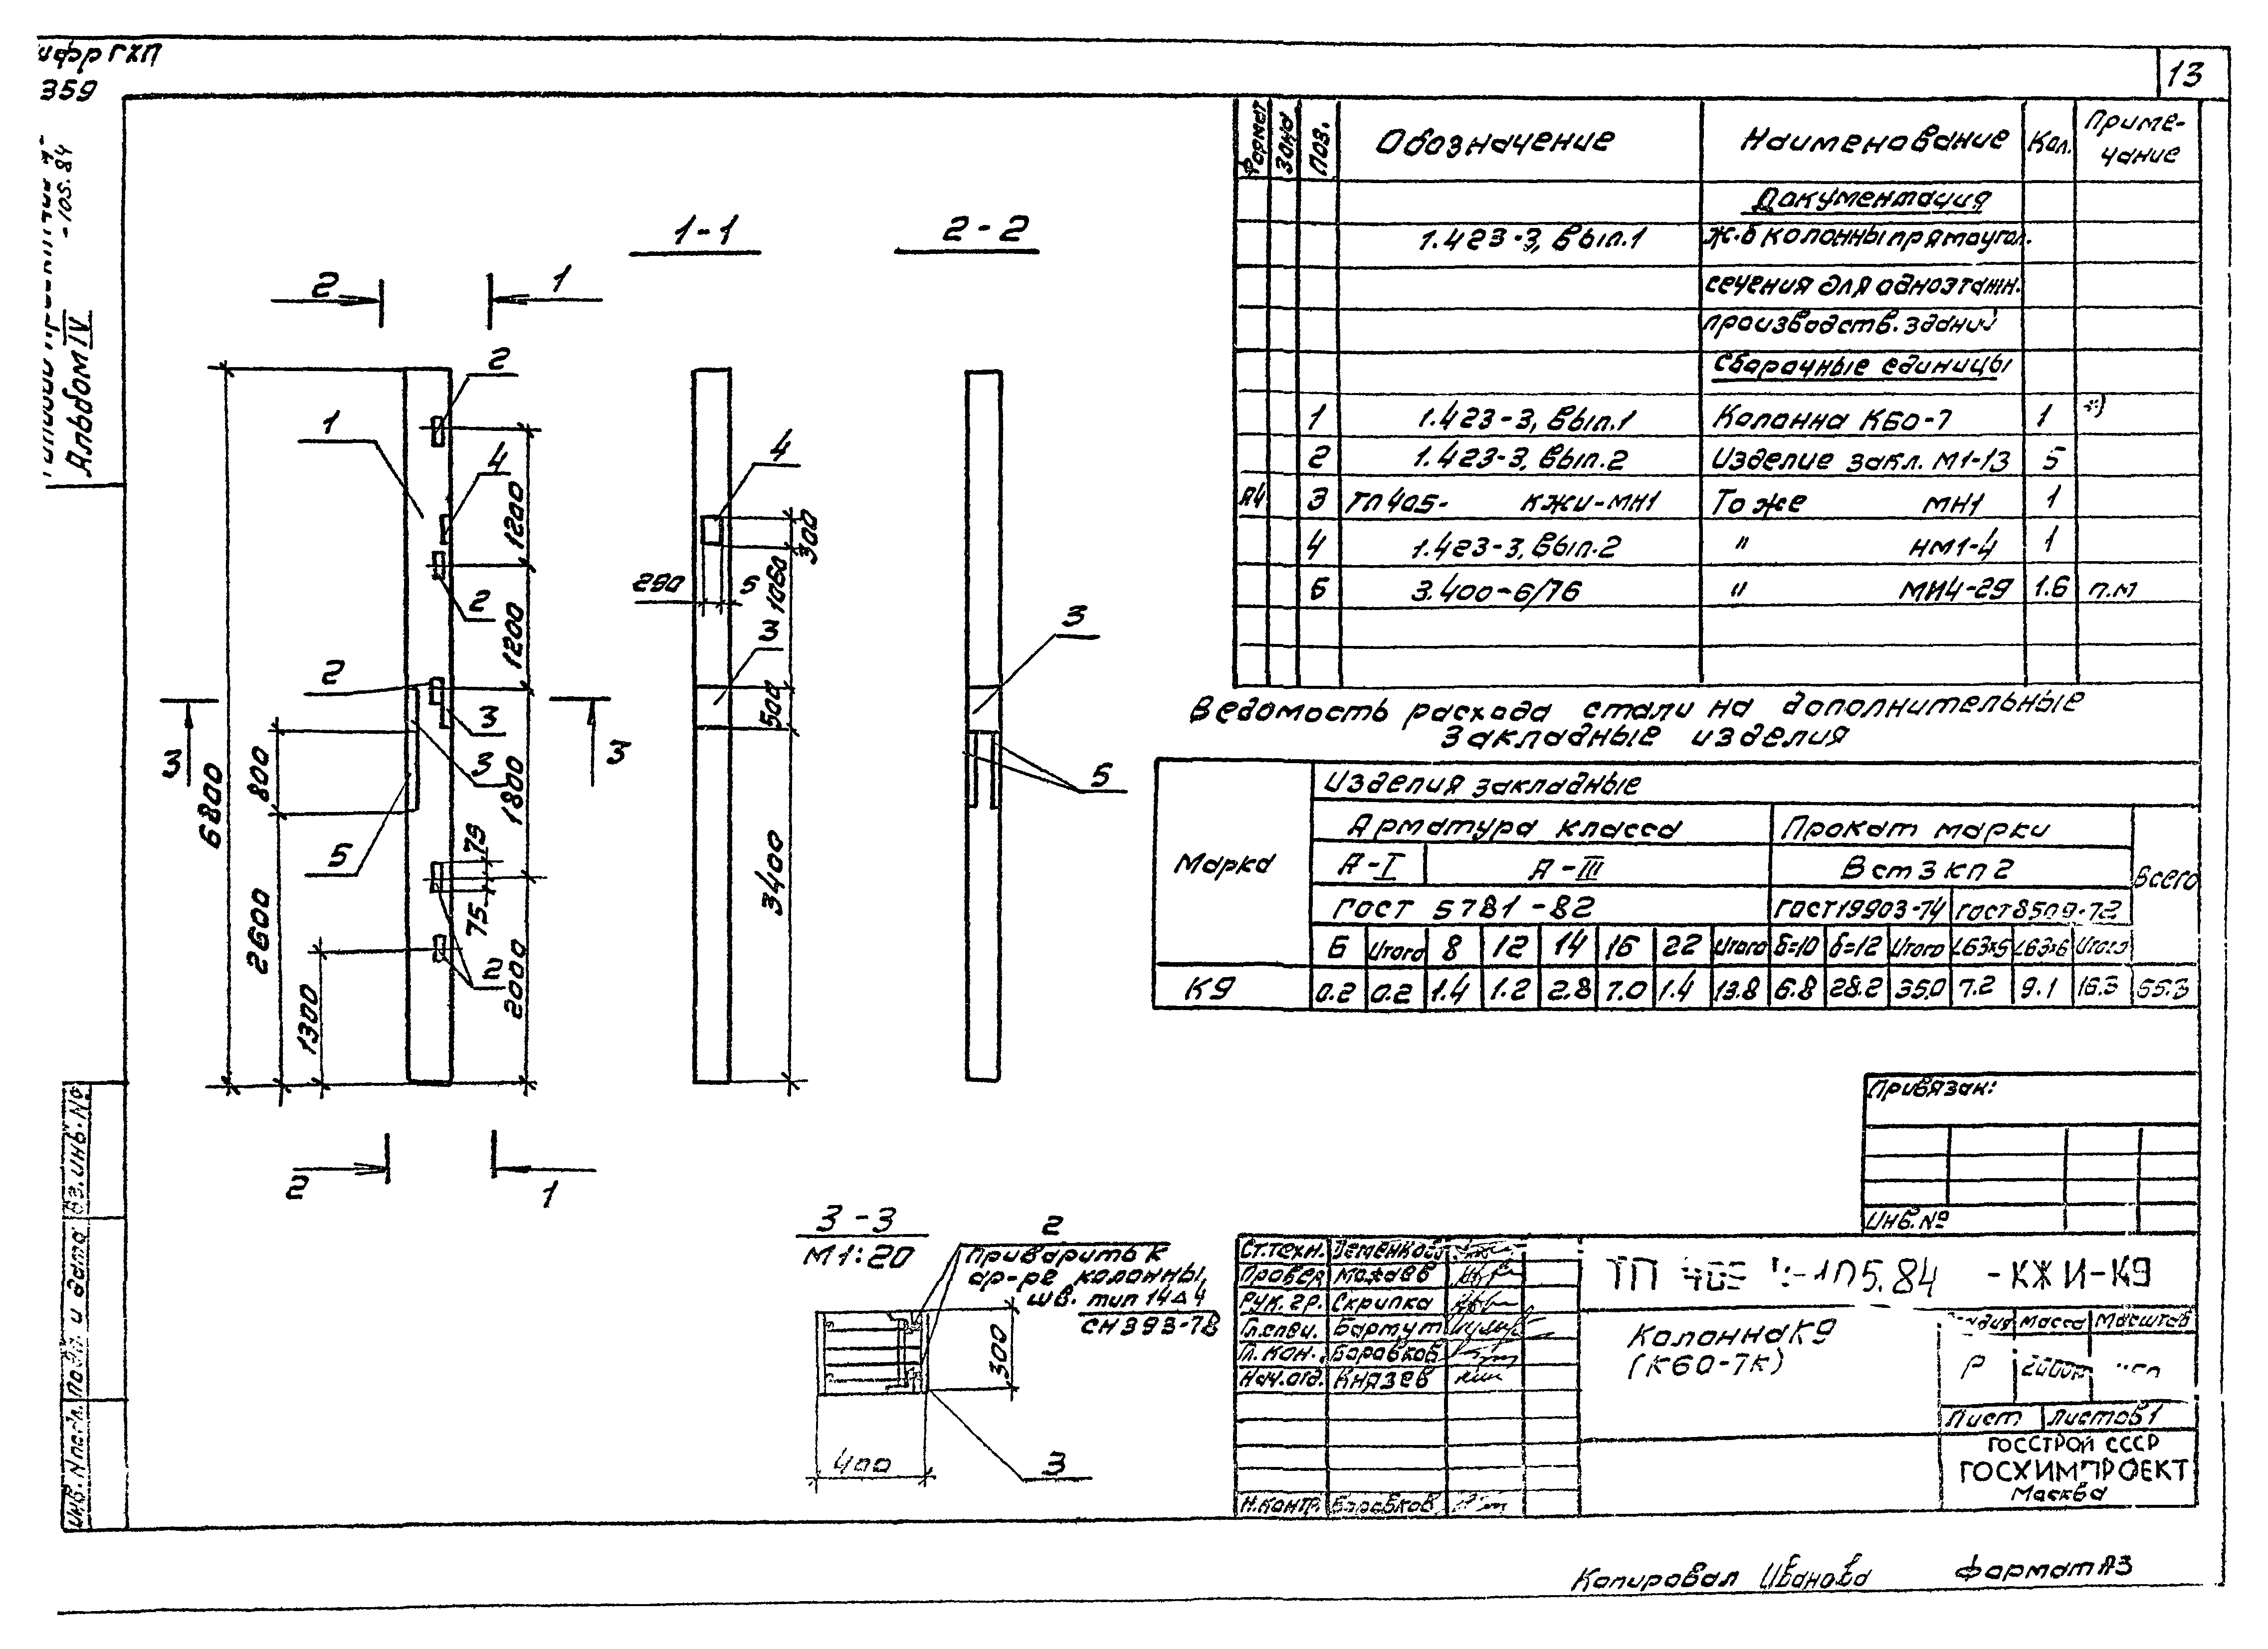 ифр ГХП
359
13
-105.84
Альбом IV
Формат Зона Поз. Обозначение Наименование Кол. Приме-
чание
Документация
1.423-3, вып.1 ж.б колонны прямоугол.
сечения для одноэтажн.
производств. зданий
Сборочные единицы
1 1.423-3, вып.1 Колонна К60-7 1 *)
2 1.423-3, вып.2 Изделие закл. М1-13 5
А4 3 ТП 405- КЖИ-МН1 То же МН1 1
4 1.423-3, вып.2 " НМ1-4 1
5 3.400-6/76 " МН4-29 1.6 п.м
Ведомость расхода стали на дополнительные
закладные изделия
Марка
Изделия закладные
Арматура класса Прокат марки
А-I А-III Вст3кп2 Всего
ГОСТ 5781-82 ГОСТ 19903-74 ГОСТ 8509-72
6 Итого 8 12 14 16 22 Итого δ=10 δ=12 Итого L63x5 L63x6 Итого
К9 0.2 0.2 1.4 1.2 2.8 7.0 1.4 13.8 6.8 28.2 35.0 7.2 9.1 16.3 65.3
1-1
2-2
2 1
2
1
4
1200
2
1200
2
3
3
3 3
800
6800
1800
5
75
75
2600
2
2000
1300
2 1
4
300
290 5 1060
3
500
3400
3
5
3-3
М1:20
2
Приварить к
ар-ре колонны,
шв. тип 14Δ4
СН 393-78
300
400
3
Привязан:
Инв.№
Ст.техн.
Провер. Можаев
Рук. гр. Скрипка
Гл.спец. Бартут
Гл. кон. Боровков
Нач.отд. Князев
Н.контр. Боровков
-105.84 -КЖИ-К9
Колонна К9
(К60-7К)
Стадия Масса Масштаб
Р
Лист Листов 1
ГОССТРОЙ СССР
ГОСХИМПРОЕКТ
Москва
Инв. № подл. Подп. и дата Вз. инв. №
Копировал Иванова Формат А3